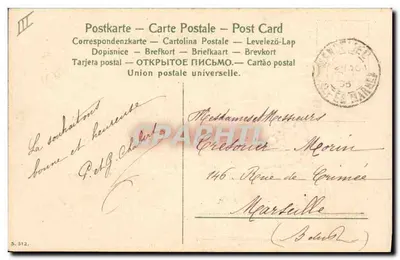 III
Postkarte - Carte Postale - Post Card
Correspondenzkarte - Cartolina Postale - Levelező-Lap
Dopisnice - Brefkort - Briefkaart - Brevkort
Tarjeta postal - ОТКРЫТОЕ ПИСЬМО. - Cartão postal
Union postale universelle.
La souhaitons
bonne et heureuse
P. et G.
Mesdames et Messieurs
Tresorier Morin
146 Rue de Crimée
Marseille